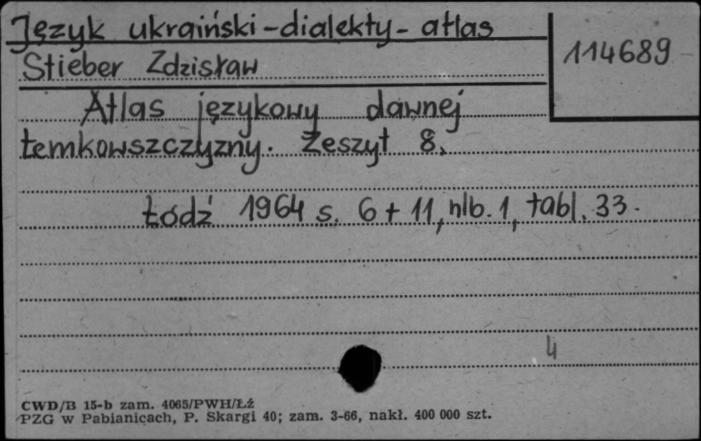 Język ukraiński-dialekty-atlas
114689
Stieber Zdzisław
Atlas językowy dawnej
łemkowszczyzny. Zeszyt 8.
Łódź 1964 s. 6+11, nlb. 1, tabl. 33.
4
CWD/B 15-b zam. 4065/PWH/Łź
PZG w Pabianicach, P. Skargi 40; zam. 3-66, nakł. 400 000 szt.